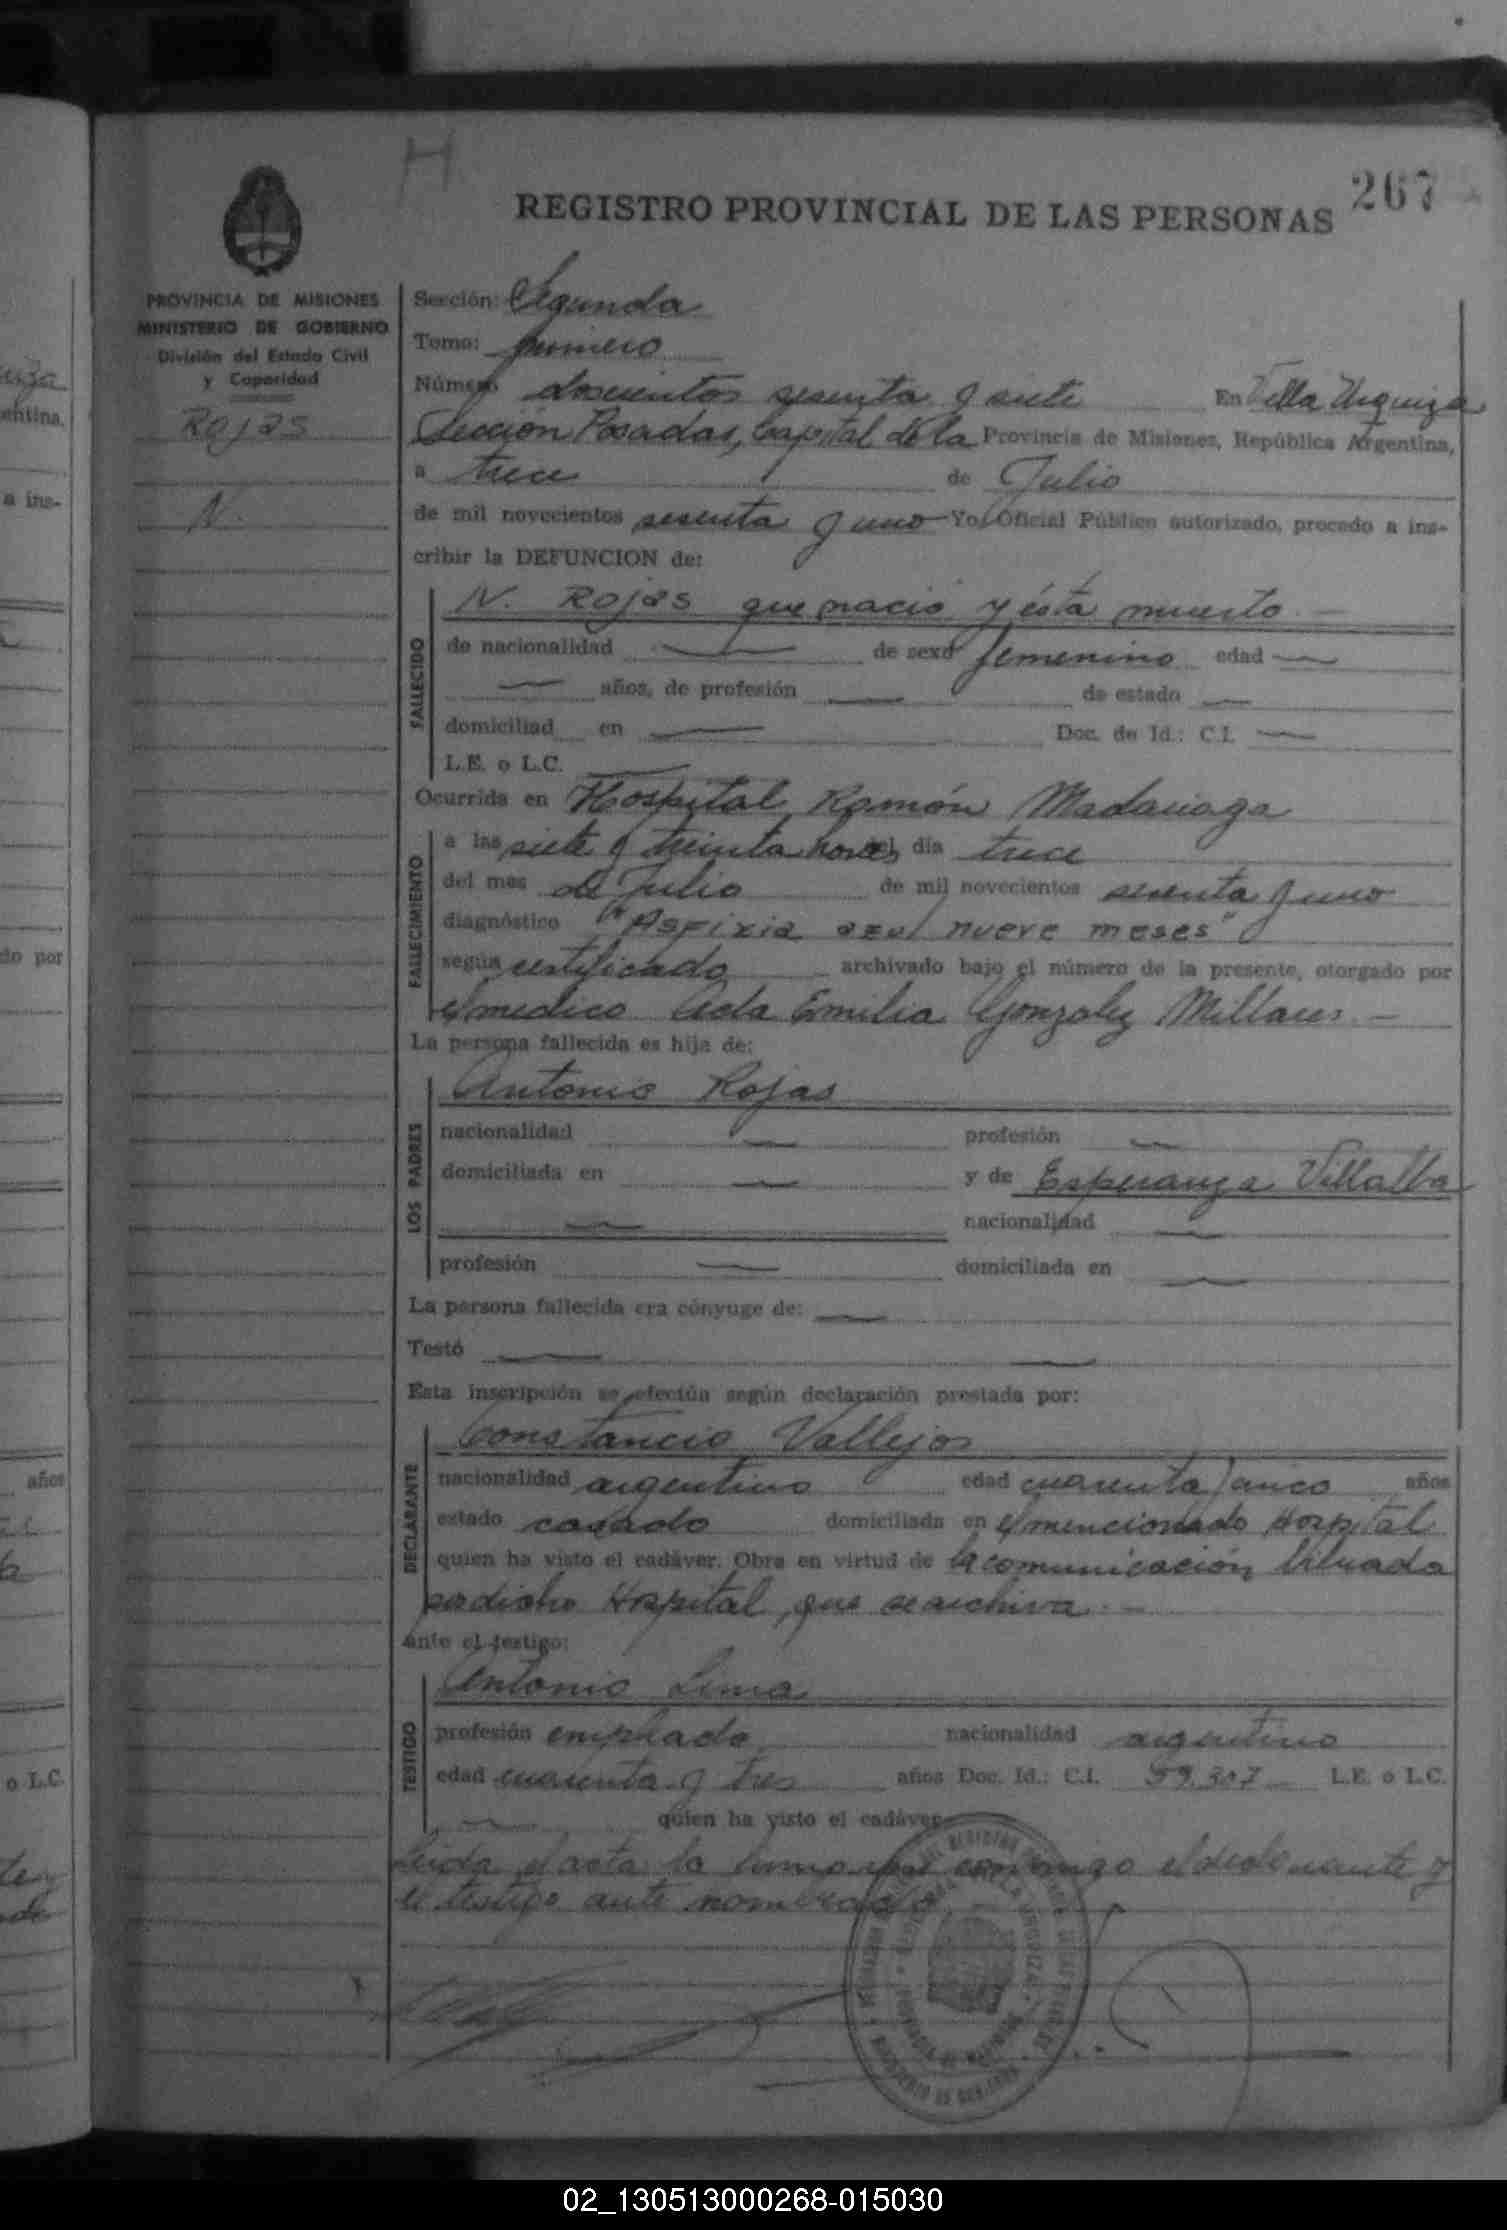 H
267
REGISTRO PROVINCIAL DE LAS PERSONAS
PROVINCIA DE MISIONES
MINISTERIO DE GOBIERNO
División del Estado Civil
y Capacidad
ROJAS
N.
Sección: Segunda
Tomo: primero
Número doscientos sesenta y siete En Villa Urquiza
Sección Posadas, Capital de la Provincia de Misiones, República Argentina,
a trece de Julio
de mil novecientos sesenta y uno Yo, Oficial Público autorizado, procedo a ins-
cribir la DEFUNCION de:
N. Rojas que nació y ésta muerto.
FALLECIDO
de nacionalidad de sexo femenino edad
años, de profesión de estado
domiciliad en Doc. de Id.: C.I.
L.E. o L.C.
Ocurrida en Hospital Ramón Madariaga
FALLECIMIENTO
a las siete y treinta horas del día trece
del mes de Julio de mil novecientos sesenta y uno
diagnóstico "Asfixia azul nueve meses"
según certificado archivado bajo el número de la presente, otorgado por
el medico Aida Emilia Gonzalez Millares.
La persona fallecida es hija de:
LOS PADRES
Antonio Rojas
nacionalidad profesión
domiciliada en y de Esperanza Villalba
nacionalidad
profesión domiciliada en
La persona fallecida era cónyuge de:
Testó
Esta inscripción se efectúa según declaración prestada por:
DECLARANTE
Constancio Vallejos
nacionalidad argentino edad cuarenta y cinco años
estado casado domiciliada en el mencionado Hospital
quien ha visto el cadáver. Obra en virtud de la comunicación librada
por dicho Hospital, que se archiva.
ante el testigo:
TESTIGO
Antonio Lima
profesión empleado nacionalidad argentino
edad cuarenta y tres años Doc. Id.: C.I. 59.307 L.E. o L.C.
quien ha visto el cadáver
Leida el acta la firman conmigo el declarante y
el testigo ante nombrado
años
o L.C.
do por
a ins-
entina,
02_130513000268-015030